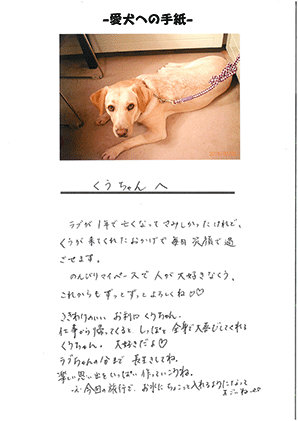 -愛犬への手紙-
くうちゃん へ
ラブが1年で亡くなってさみしかったけれど、
くうが来てくれたおかげで毎日笑顔で過
ごせます。
のんびりマイペースで人が大好きなくう。
これからもずっとずっとよろしくね♡♡
ききわけのいいお利口くうちゃん。
仕事から帰ってくると、しっぽと全身で大喜びしてくれる
くうちゃん。大好きだよ♡
ラブちゃんの分まで長生きしてね。
楽しい思い出をいっぱい作っていこうね。
今回の旅行で、お水にちょこっと入れるようになって
すごーね